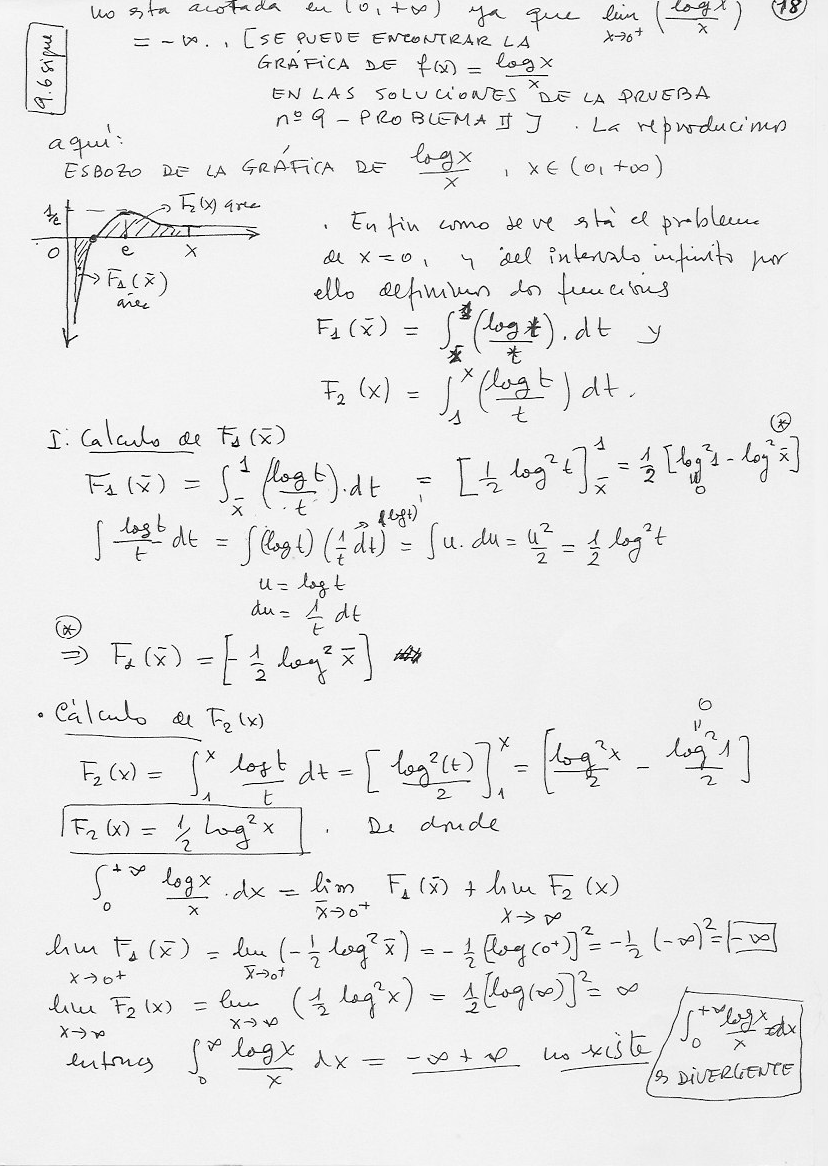 no está acotada en (0, +∞) ya que lim x→0⁺ (log x / x) (18)
= -∞. [SE PUEDE ENCONTRAR LA
9.6 sigue
GRÁFICA DE f(x) = log x / x
EN LAS SOLUCIONES DE LA PRUEBA
nº 9 - PROBLEMA II]. La reproducimos
aquí:
ESBOZO DE LA GRÁFICA DE log x / x, x ∈ (0, +∞)
1/e F₂(x) área
0 e x
F₁(x̄)
área
. En fin como se ve está el problema
de x = 0, y del intervalo infinito por
ello definimos dos funciones
F₁(x̄) = ∫_x̄^1 (log t / t) . dt y
F₂(x) = ∫_1^x (log t / t) dt.
I: Calculo de F₁(x̄)
F₁(x̄) = ∫_x̄^1 (log t / t) . dt = [1/2 log² t]_x̄^1 = 1/2 [log² 1 - log² x̄] (*)
0
∫ log t / t dt = ∫ (log t) (1/t dt) = ∫ u. du = u²/2 = 1/2 log² t
(log t)'
u = log t
du = 1/t dt
(*)
⇒ F₁(x̄) = [- 1/2 log² x̄]
. Cálculo de F₂(x)
0
F₂(x) = ∫_1^x log t / t dt = [log²(t) / 2]_1^x = [log² x / 2 - log² 1 / 2]
F₂(x) = 1/2 Log² x . De donde
∫_0^{+∞} log x / x . dx = lim x̄→0⁺ F₁(x̄) + lim x→∞ F₂(x)
lim x→0⁺ F₁(x̄) = lim x̄→0⁺ (-1/2 log² x̄) = -1/2 [log(0⁺)]² = -1/2 (-∞)² = -∞
lim x→∞ F₂(x) = lim x→∞ (1/2 log² x) = 1/2 [log(∞)]² = ∞
entonces ∫_0^∞ log x / x dx = -∞ + ∞ no existe
∫_0^{+∞} log x / x dx
es DIVERGENTE